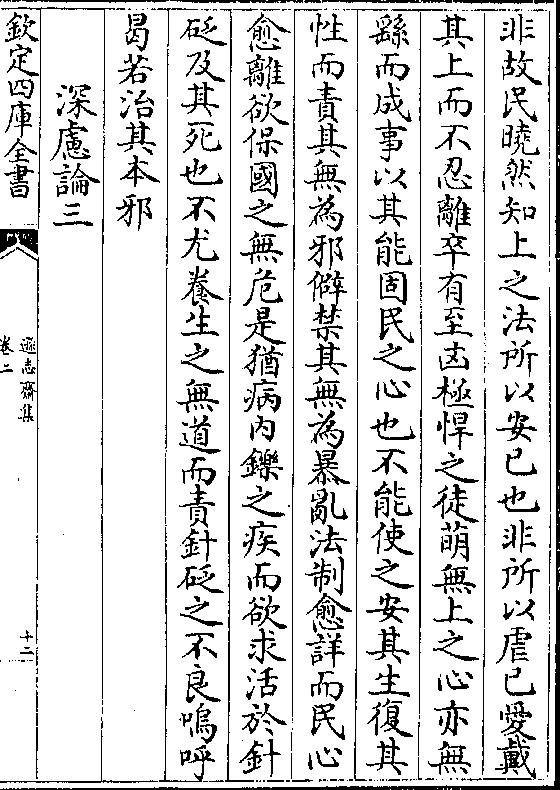 非故民曉然知上之法所以安已也非所以虐已愛戴
其上而不忍離卒有至凶極悍之徒萌無上之心亦無
繇而成事以其能固民之心也不能使之安其生復其
性而責其無為邪僻禁其無為暴亂法制愈詳而民心
愈離欲保國之無危是猶病内鑠之疾而欲求活於針
砭及其死也不尤養生之無道而責針砭之不良嗚呼
曷若治其本邪
深慮論三
欽定四庫全書
遜志齋集
卷二
十二